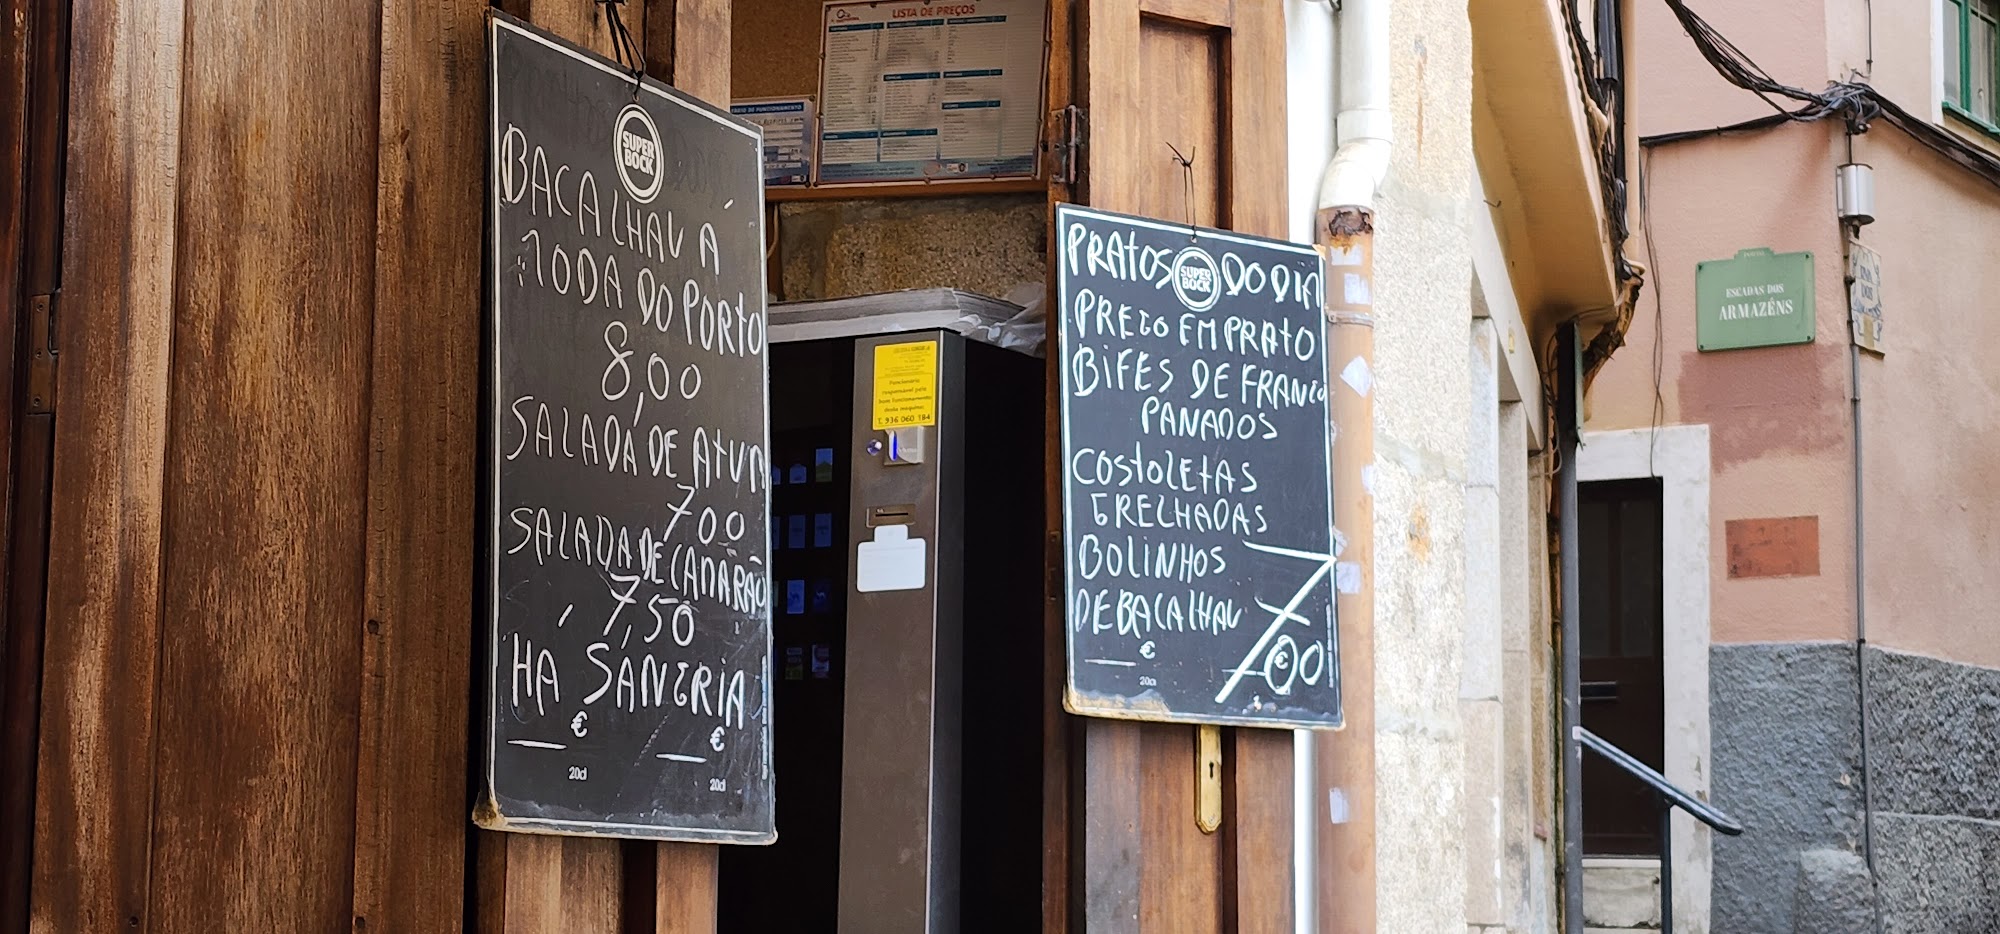 SUPER
BOCK
BACALHAU Á
MODA DO PORTO
8,00
SALADA DE ATUM
700
SALADA DE CAMARÃO
7,50
HÁ SANGRIA
€
€
20cl
20cl
LISTA DE PREÇOS
FUNCIONAMENTO
Funcionário
responsável pelo
bom funcionamento
desta máquina:
T. 936 060 184
PRATOS DO DIA
SUPER
BOCK
PREGO EM PRATO
BIFES DE FRANGO
PANADOS
COSTOLETAS
GRELHADAS
BOLINHOS
DE BACALHAU
7,00
€
€
20cl
ESCADAS DOS
ARMAZÉNS